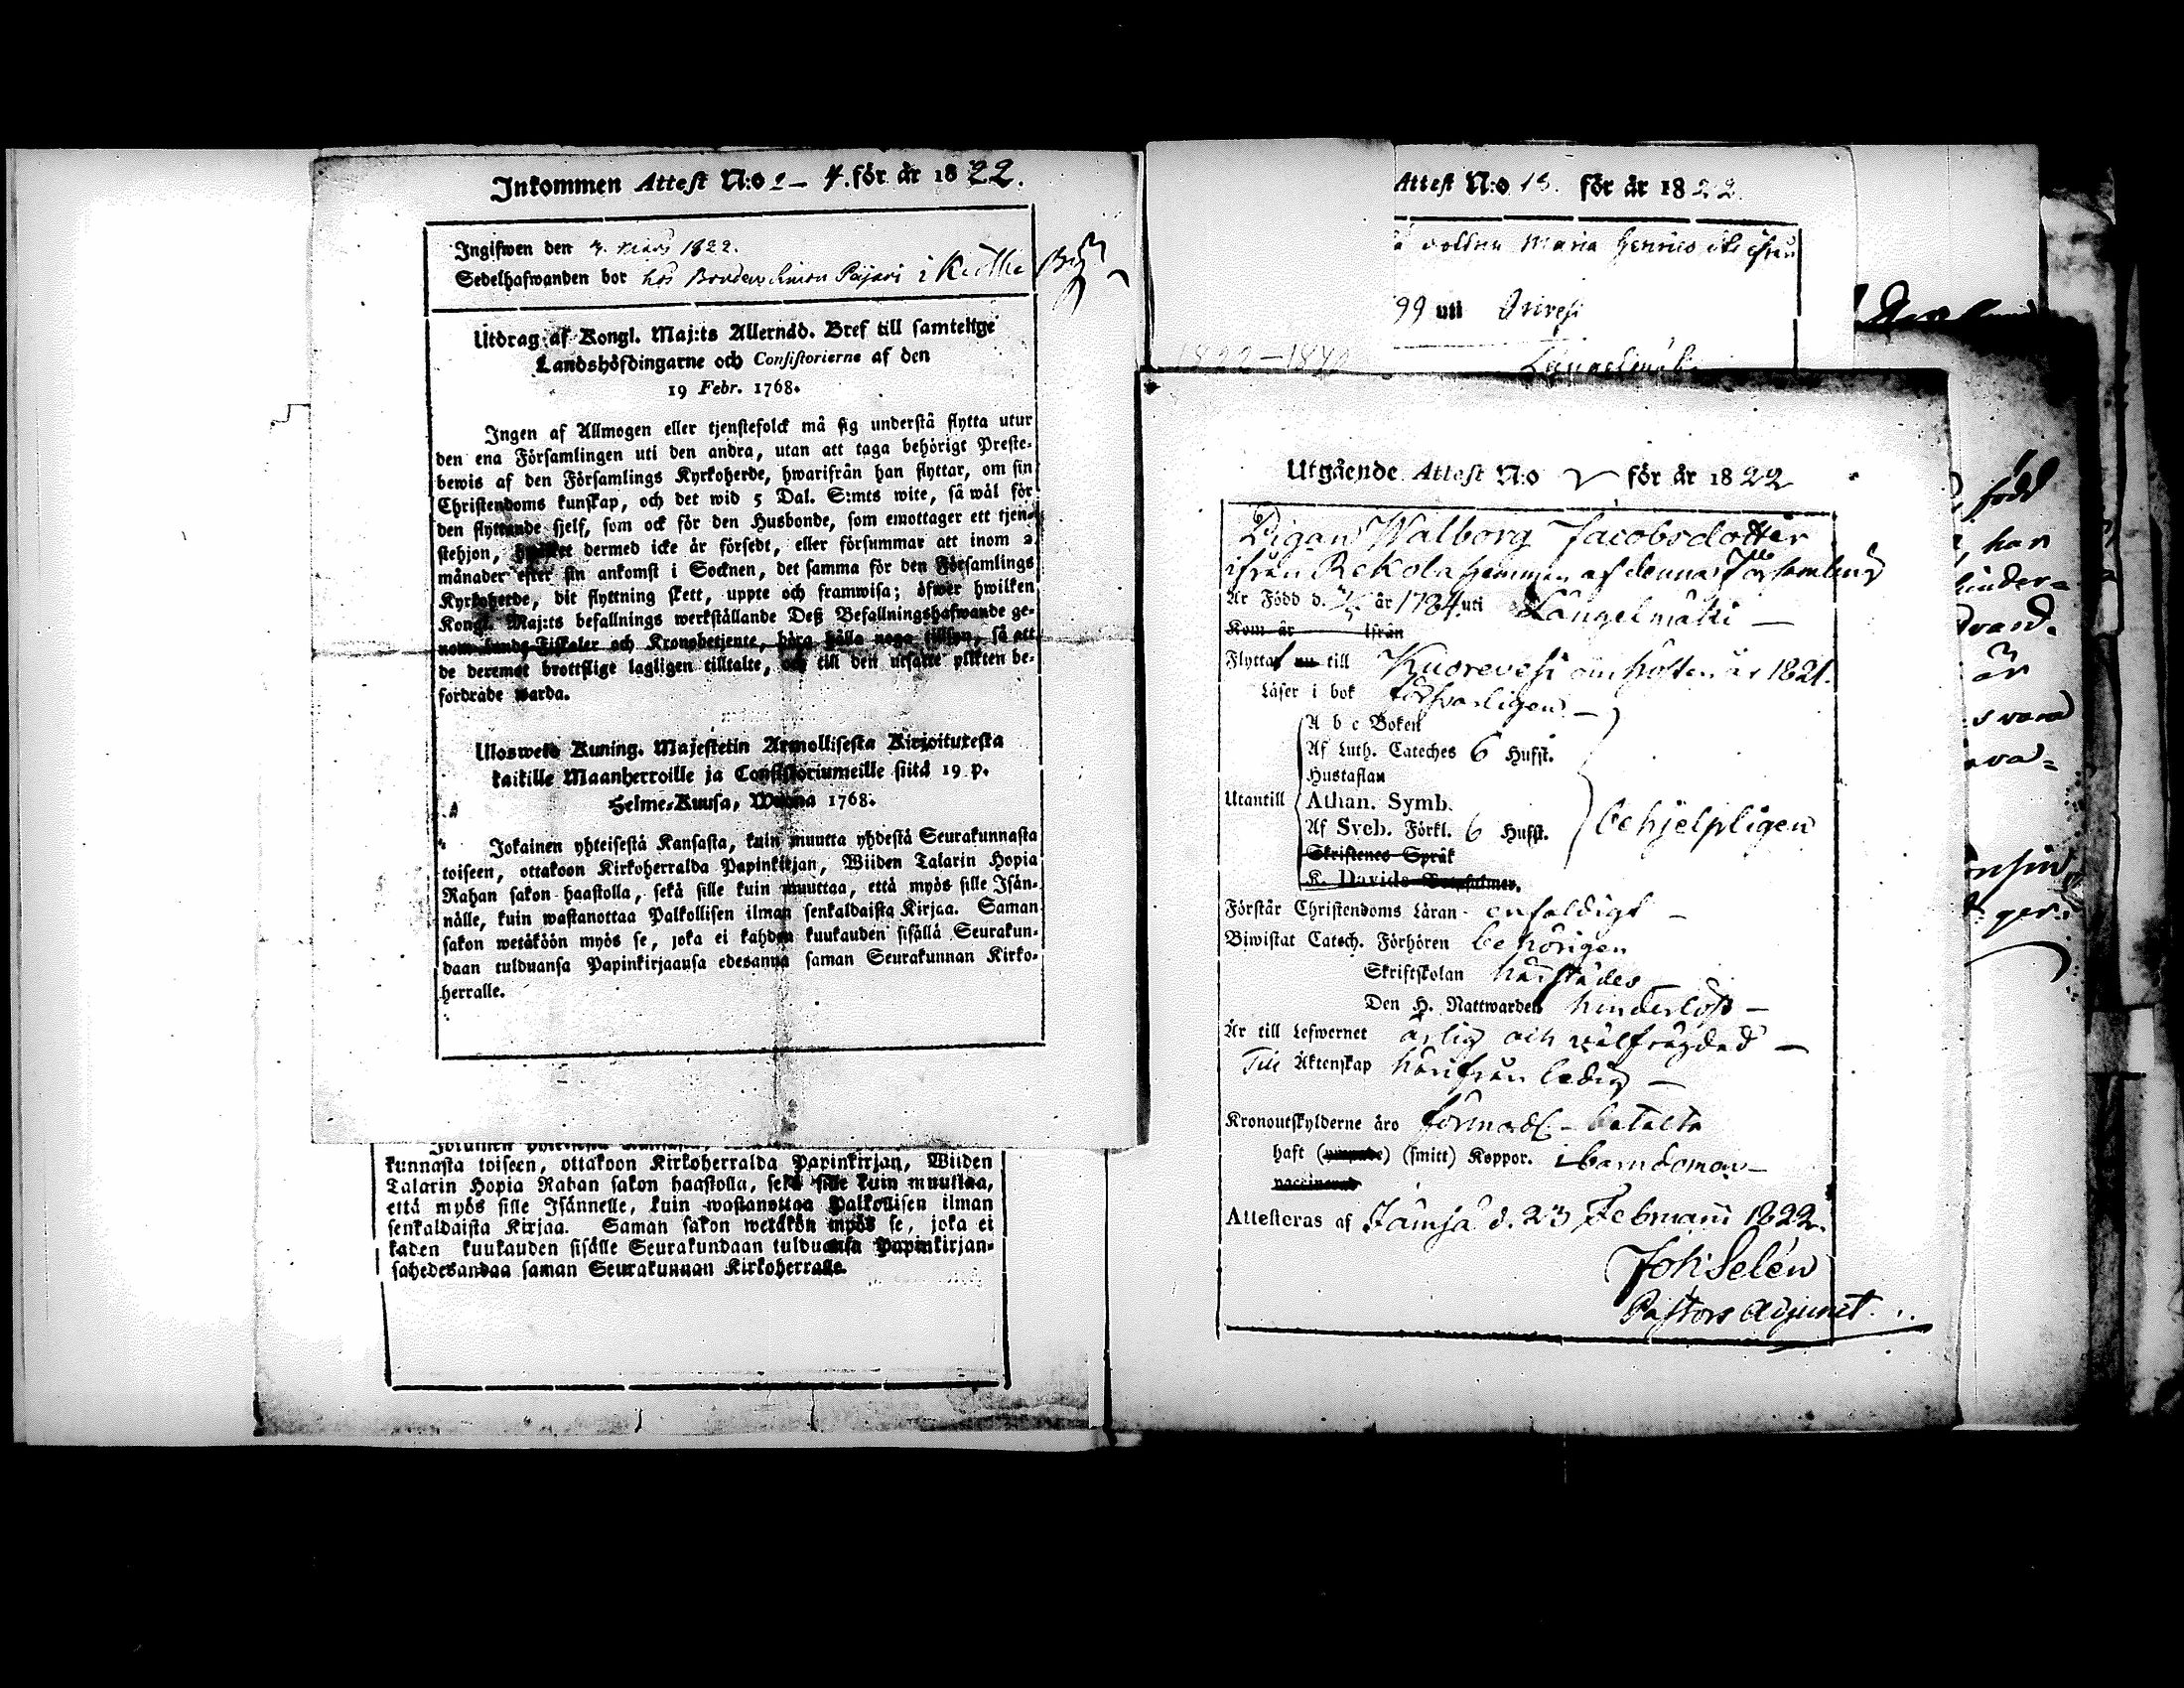 Inkommen Attest N:o 2 – 4. för år 1822.
Ingifwen den 3. Mars 1822.
Sedelhafwanden bor hos Bonden Simon Päjari i
Utdrag af Kongl. Maj:ts Allernåd. Bref till samtelige
Landshöfdingarne och Consistorierne af den
19 Febr. 1768.
Ingen af Allmogen eller tjenstefolck må sig understå flytta utur
den ena Församlingen uti den andra, utan att taga behörigt Preste-
bewis af den Församlings Kyrkoherde, hwarifrån han flyttar, om sin
Christendoms kunskap, och det wid 5 Dal. S:mts wite, så wäl för
den flyttande sjelf, som ock för den Husbonde, som emottager ett tjen-
stehjon, dermed icke är försedt, eller försummar att inom 2
månader efter sin ankomst i Socknen, det samma för den Församlings
Kyrkoherde, dit flyttning skett, uppte och framwisa; öfwer hwilken
Kongl. Maj:ts befallnings werkställande Deß Befallningshafwande ge-
nom Lands-Fiskaler och Kronobetjente, böra hålla noga tillsyn, så att
de deremot brottslige lagligen tilltalte, och till den utsatte plikten be-
fordrade warda.
Uloswetä Kuning. Majestetin Armollisesta Kirjoituxesta
kaikille Maanherroille ja Consistoriumeille siitä 19 p.
Helme-Kuusa, Wuona 1768.
Jokainen yhteisestä Kansasta, kuin muutta yhdestä Seurakunnasta
toiseen, ottakoon Kirkoherralda Papinkirjan, Wiiden Talarin Hopia
Rahan sakon haastolla, sekä sille kuin muuttaa, että myös sille Isän-
nälle, kuin wastanottaa Palkollisen ilman senkaldaista Kirjaa. Saman
sakon wetäköön myös se, joka ei kahden kuukauden sisällä Seurakun-
daan tulduansa Papinkirjaansa edesanna saman Seurakunnan Kirko-
herralle.
kunnasta toiseen, ottakoon Kirkoherralda Papinkirjan, Wiiden
Talarin Hopia Rahan sakon haastolla, sekä sille kuin muuttaa,
että myös sille Isännelle, kuin wastanottaa Palkollisen ilman
senkaldaista Kirjaa. Saman sakon wetäkön myös se, joka ei
kaden kuukauden sisälle Seurakundaan tulduansa Papinkirjan-
sahedesandaa saman Seurakunnan Kirkoherralle.
Attest N:o 18. för år 1822.
Maria Henrics
99 uti Orivesi
1822–1842
Längelmäki
Utgående Attest N:o 2 för år 1822
Pigan Walborg Jacobsdotter
ifrån Rekola hemman af denna Församling
Är Född d. år 1784 uti Längelmäki –
Kom år ifrån
Flyttat nu till Kuorevesi om hösten år 1821.
Läser i bok försvarligen –
A b c Boken
Af Luth. Cateches 6 Hufst.
Hustaflan
Utantill Athan. Symb.
Af Sveb. Förkl. 6 Hufst. behjelpligen
Skriftenes Språk
K. Davids Botpsalmer.
Förstår Christendoms Läran enfaldigt –
Biwistat Catech. Förhören behörigen
Skriftskolan härstädes
Den H. Nattwarden hinderlöst –
Är till Lefwernet ärlig och wälfrägdad –
Till Äktenskap härifrån ledig –
Kronoutskylderne äro betalta
haft (ympade) (smitt) Koppor. i barndomen –
vaccinerad
Attesteras af Jämsä d. 23 Februarii 1822.
Joh Selén
Pastors adjunct.
född
han
hinder-